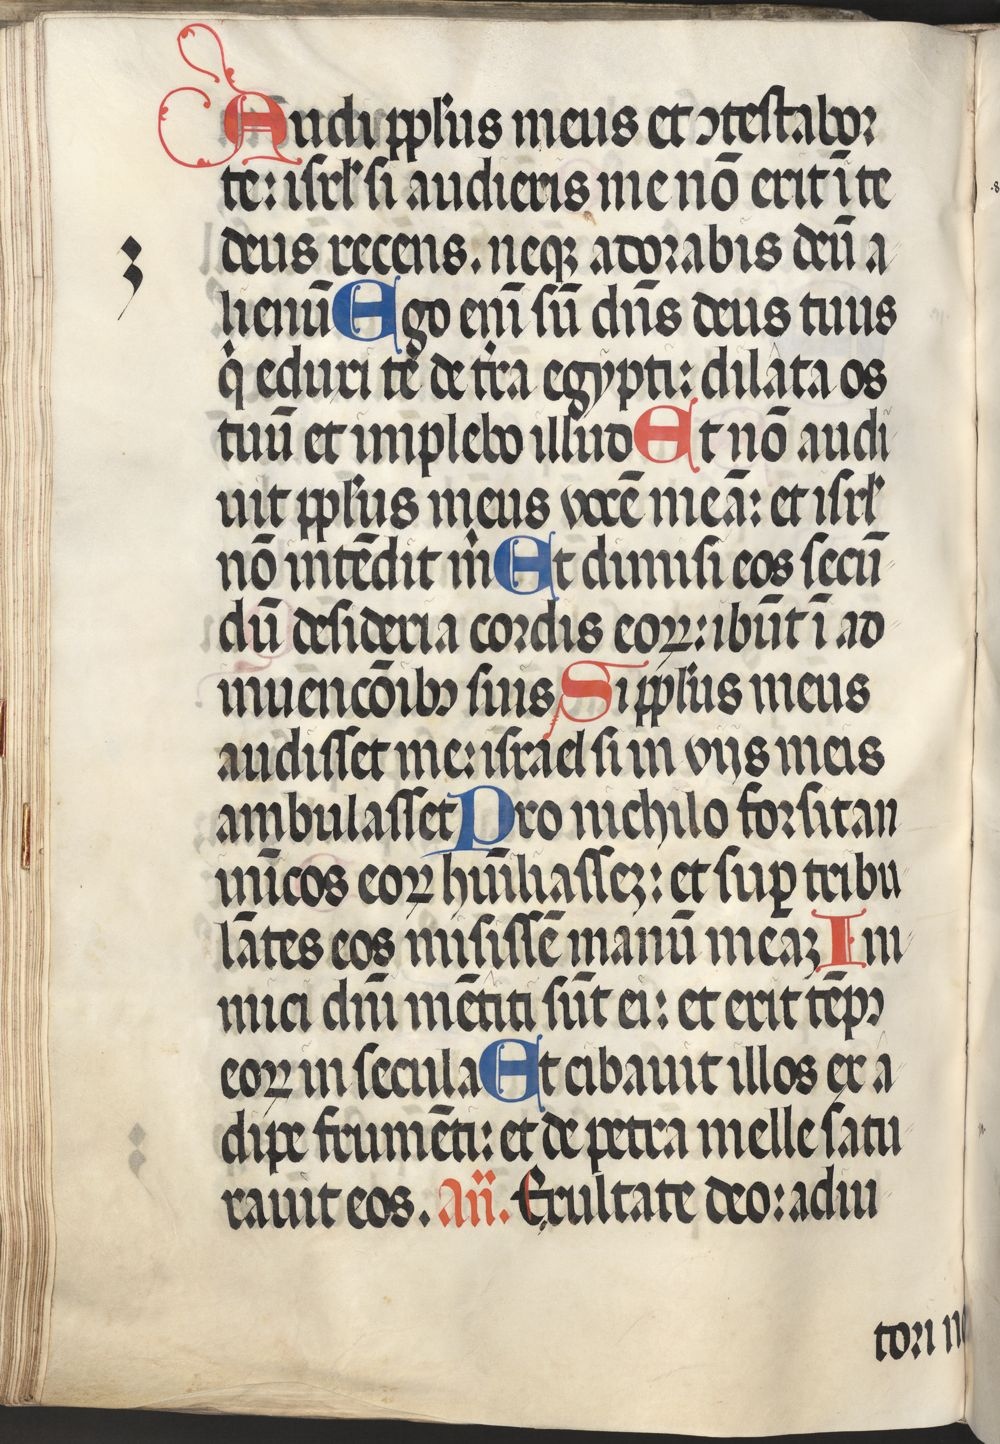 Audi pplus meus et ɔtestabor
te: isrl si audieris me nō erit ī te
deus recens. neqꝫ adorabis deū a
lienū Ego enī sū dn̄s deus tuus
q̇ eduxi te de tr̄a egypti: dilata os
tuū et implebo illud Et nō audi
uit pplus meus vocē meā: et isrl
nō intēdit ṁ Et dimisi eos secū
dū desideria cordis eoꝝ: ibūt ī ad
inuencōibꝰ suis Si pplus meus
audisset me: israel si in vijs meis
ambulasset Pro nichilo forsitan
inīcos eoꝝ hūiliasseꝫ: et suꝑ tribu
lātes eos misissē manū meaꝫ Ini
mici dn̄i mētiti sūt ei: et erit tēpꝰ
eoꝝ in secula Et cibauit illos ex a
dipe frumēti: et de petra melle satu
rauit eos. An̄. Exultate deo: adiu
tori no